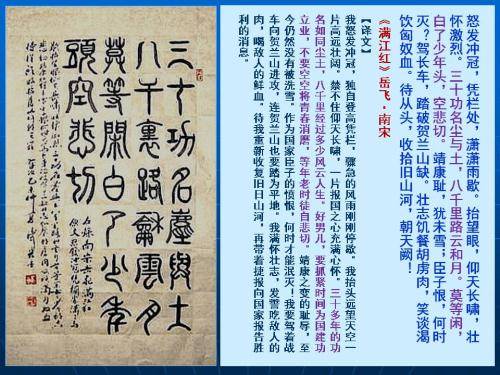 怒发冲冠，凭栏处，潇潇雨歇。抬望眼，仰天长啸，壮
怀激烈。三十功名尘与土，八千里路云和月。莫等闲，
白了少年头，空悲切。靖康耻，犹未雪；臣子恨，何时
灭？驾长车，踏破贺兰山缺。壮志饥餐胡虏肉，笑谈渴
饮匈奴血。待从头，收拾旧山河，朝天阙！
《满江红》岳飞·南宋
【译文】
我怒发冲冠，独自登高凭栏，骤急的风雨刚刚停歇。我抬头远望天空一
片高远壮阔。禁不住仰天长啸，一片报国之心充满心怀。三十多年的功
名如同尘土，八千里经过多少风云人生。好男儿，要抓紧时间为国建功
立业，不要空空将青春消磨，等年老时徒自悲切。靖康之变的耻辱，至
今仍然没有被洗雪。作为国家臣子的愤恨，何时才能泯灭！我要驾着战
车向贺兰山进攻，连贺兰山也要踏为平地。我满怀壮志，发誓吃敌人的
肉，喝敌人的鲜血。待我重新收复旧日山河，再带着捷报向国家报告胜
利的消息。
三十功名塵與土
八千裏路龢雲月
莫等閒白了少年
頭空悲切